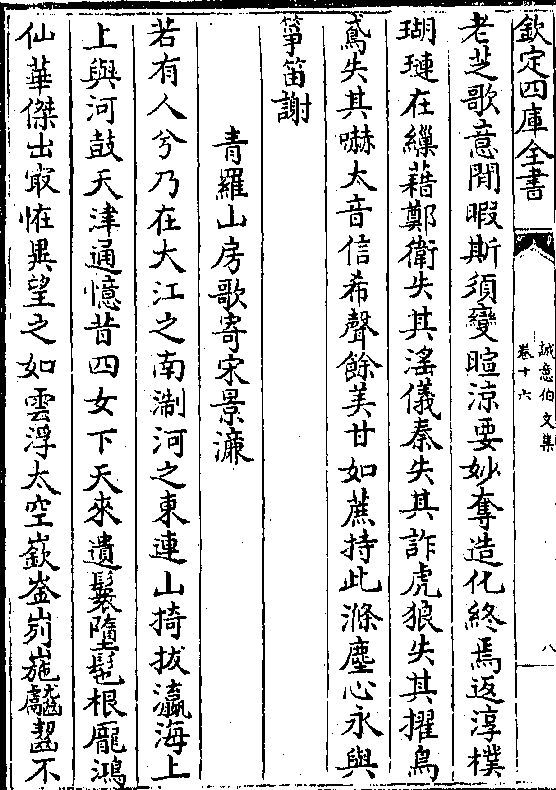 欽定四庫全書
誠意伯文集
卷十六
八
老芝歌意閒暇斯須變暄涼要妙奪造化終焉返淳樸
瑚璉在繅藉鄭衛失其滛儀秦失其詐虎狼失其擢烏
鳶失其嚇太音信希聲餘美甘如蔗持此滌塵心永與
箏笛謝
青羅山房歌寄宋景濂
若有人兮乃在大江之南淛河之東連山掎拔瀛海上
上與河鼓天津通憶昔四女下天來遺鬟墮髢根龐鴻
仙華傑出冣恠異望之如雲浮太空嶔崟峛崺不